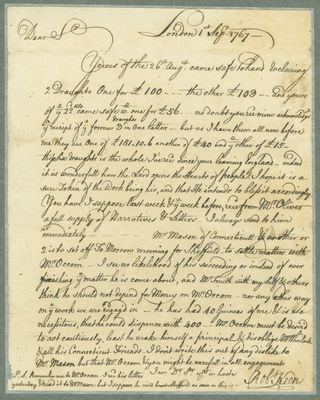 Dear Sr London 1st Sepr 1767
Yours of the 26th Augt came safe to hand Enclosing
2 Draughts One for £100 -- the other £109 -- and yours
of ye 22d came safe wth one for £56 -- no doubt you've mine acknowledging
ye receipt of ye former Draughts in One letter -- but as I have them all now before
me they are One of £151.10.6 another of £40 and ye other of £15 --
this draught is the whole I've recd since your leaving England. indeed
it is wonderfull how the Lord opens the Hearts of People & I hope it is a
sure Token of the Work being his, and that He intends to bless it accordingly
You have I suppose that week & ye week before, recd from Mr Olives
a full supply of Narratives & Letters. I always send to him
immediately -- Mr Mason of Connecticutt & another or
2 is to set off To Morrow morning for Sheffield to settle matters with
Mr Occom -- I see no likelihood of his succeeding or indeed of ever
finishing ye matter he is come about, and Mr Smith with my self & others
think he should not depend for Money on Mr Occom -- nor any other way
on ye work we are engaged in -- he has had 40 Guineas of me & is so
necessitous, that he could dispence with 400 -- Mr Occom must be desired
to act cautiously, least he make himself a principal, & disoblige Mr Wheelock
& all his Connecticut Friends. I don't write this out of any dislike to
Mr Mason but that Mr Occom may be carefull in all engagements
I am Dr Sr yrs in haste
Robt Keen
P.S. Remember me to Mr Occom. I recd his letter
yesterday & read it to Mr Mason but I suppose he will